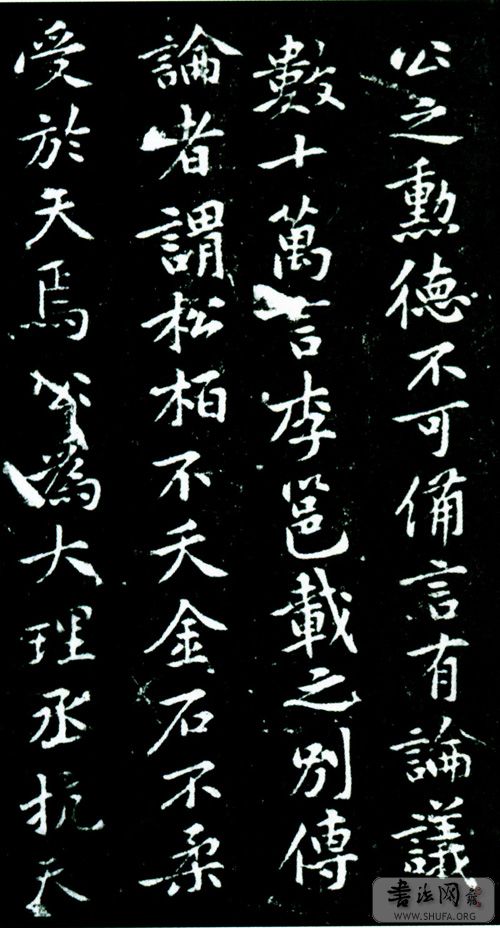 公之勳德不可備言有論議
數十萬言李邕載之別傳
論者謂松柏不夭金石不柔
受於天焉公為大理丞抗天
書法网
WWW.SHUFA.ORG